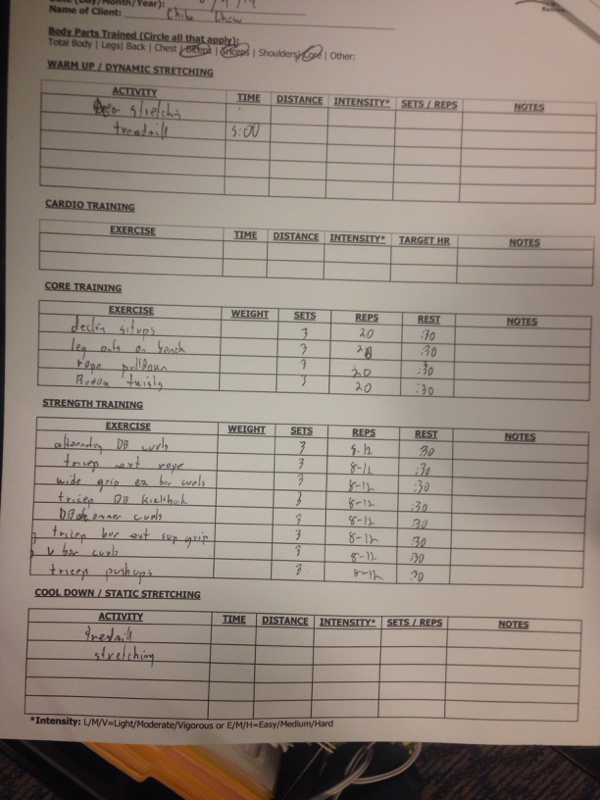 (Day/Month/Year):
Name of Client:
Body Parts Trained (Circle all that apply):
Total Body | Legs| Back | Chest | Biceps | Triceps | Shoulders| Core | Other:
WARM UP / DYNAMIC STRETCHING
ACTIVITY TIME DISTANCE INTENSITY* SETS / REPS NOTES
stretchin
treadmill 5:00
CARDIO TRAINING
EXERCISE TIME DISTANCE INTENSITY* TARGET HR NOTES
CORE TRAINING
EXERCISE WEIGHT SETS REPS REST NOTES
situps 3 20 :30
leg outs on bench 3 20 :30
rope pulldown 3 20 :30
Broom twists 3 20 :30
STRENGTH TRAINING
EXERCISE WEIGHT SETS REPS REST NOTES
DB curls 3 8-12 30
tricep ext rope 3 8-12 :30
wide grip ez bar curls 3 8-12 :30
tricep DB kickback 3 8-12 30
curls 3 8-12 30
tricep bar ext sup grip 3 8-12 30
v bar curls 3 8-12 30
tricep pushups 3 8-12 30
COOL DOWN / STATIC STRETCHING
ACTIVITY TIME DISTANCE INTENSITY* SETS / REPS NOTES
treadmill
stretching
*Intensity: L/M/V=Light/Moderate/Vigorous or E/M/H=Easy/Medium/Hard